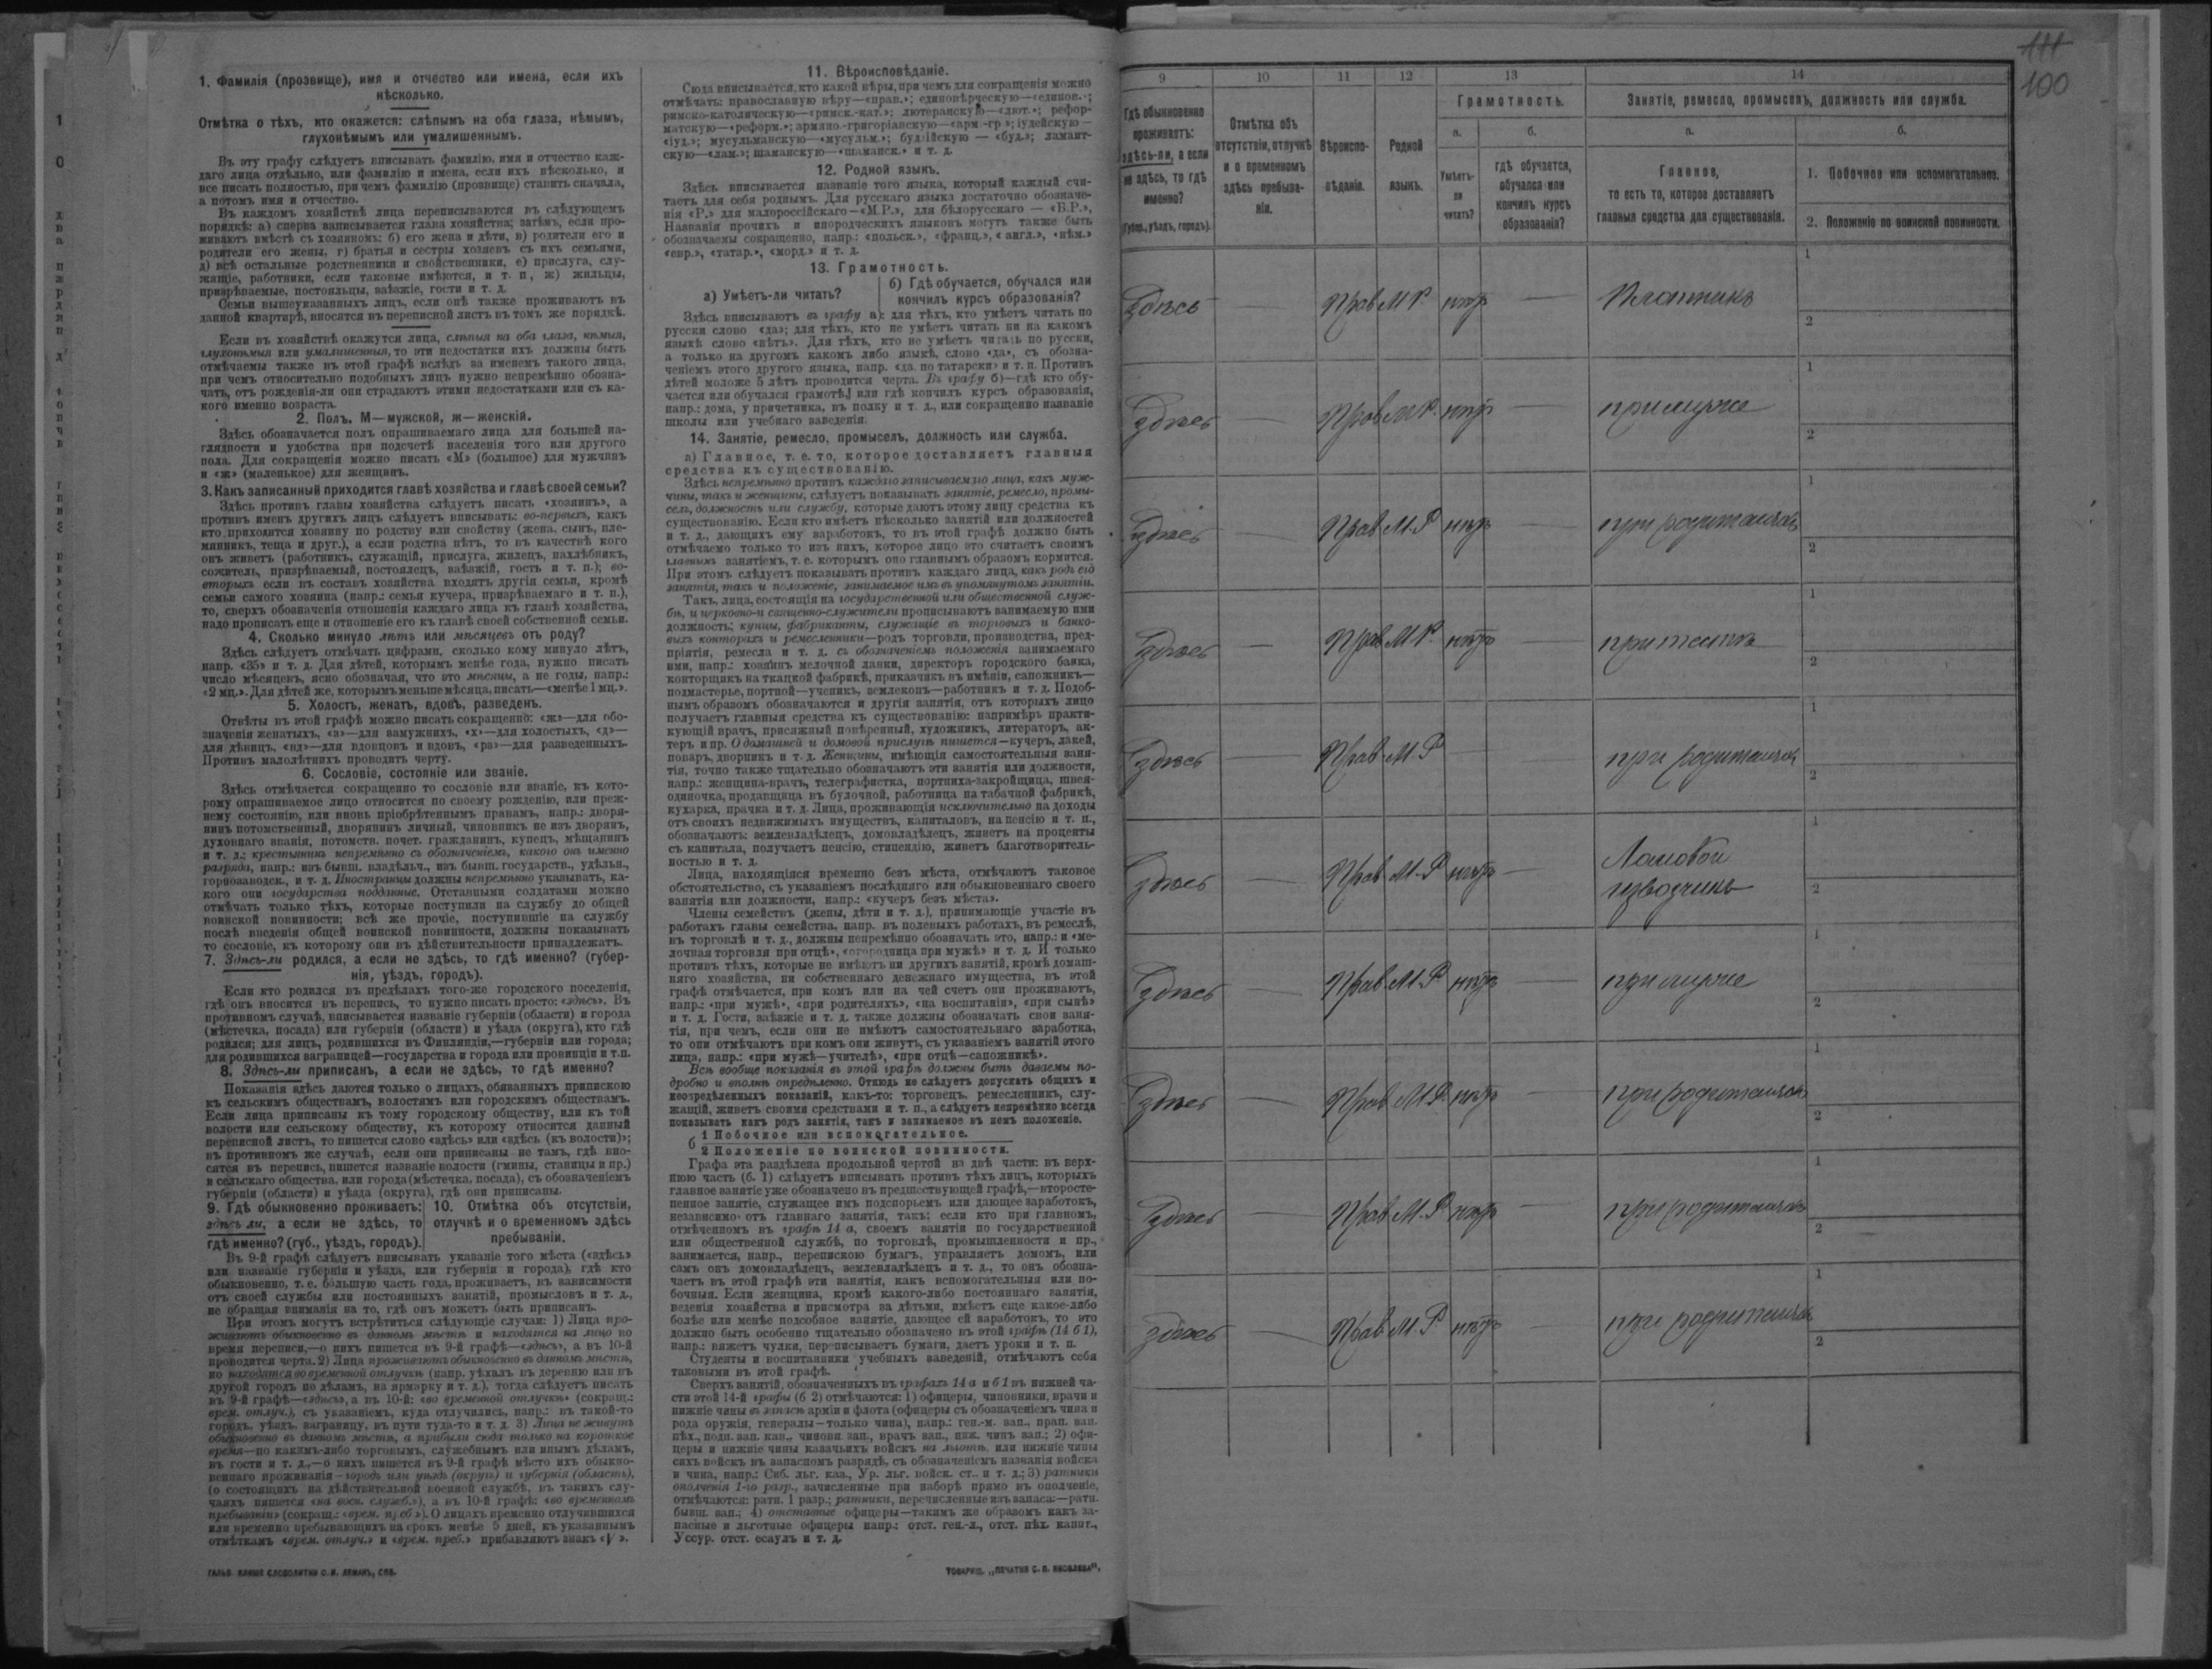 1. Фамилія (прозвище), имя и отчество или имена, если ихъ
нѣсколько.
Отмѣтка о тѣхъ, кто окажется: слѣпымъ на оба глаза, нѣмымъ,
глухонѣмымъ или умалишеннымъ.
Въ эту графу слѣдуетъ вписывать фамилію, имя и отчество каж-
даго лица отдѣльно, или фамилію и имена, если ихъ нѣсколько, и
все писать полностью, при чемъ фамилію (прозвище) ставить сначала,
а потомъ имя и отчество.
Въ каждомъ хозяйствѣ лица переписываются въ слѣдующемъ
порядкѣ: а) сперва записывается глава хозяйства; затѣмъ, если про-
живаютъ вмѣстѣ съ хозяиномъ: б) его жена и дѣти, в) родители его и
родители его жены, г) братья и сестры хозяевъ съ ихъ семьями,
д) всѣ остальные родственники и свойственники, е) прислуга, слу-
жащіе, работники, если таковые имѣются, и т. п, ж) жильцы,
призрѣваемые, постояльцы, заѣзжіе, гости и т. д.
Семьи вышеуказанныхъ лицъ, если онѣ также проживаютъ въ
данной квартирѣ, вносятся въ переписной листъ въ томъ же порядкѣ.
Если въ хозяйствѣ окажутся лица, слѣпыя на оба глаза, нѣмыя,
глухонѣмыя или умалишенныя, то эти недостатки ихъ должны быть
отмѣчаемы также въ этой графѣ вслѣдъ за именемъ такого лица,
при чемъ относительно подобныхъ лицъ нужно непремѣнно обозна-
чать, отъ рожденія-ли они страдаютъ этими недостатками или съ ка-
кого именно возраста.
2. Полъ, М—мужской, ж—женскій.
Здѣсь обозначается полъ опрашиваемаго лица для большей на-
глядности и удобства при подсчетѣ населенія того или другого
пола. Для сокращенія можно писать «М» (большое) для мужчинъ
и «ж» (маленькое) для женщинъ.
3. Какъ записанный приходится главѣ хозяйства и главѣ своей семьи?
Здѣсь противъ главы хозяйства слѣдуетъ писать «хозяинъ», а
противъ именъ другихъ лицъ слѣдуетъ вписывать: во-первыхъ, какъ
кто приходится хозяину по родству или свойству (жена, сынъ, пле-
мянникъ, теща и друг.), а если родства нѣтъ, то въ качествѣ кого
онъ живетъ (работникъ, служащій, прислуга, жилецъ, нахлѣбникъ,
сожитель, призрѣваемый, постоялецъ, заѣзжій, гость и т. п.); во-
вторыхъ если въ составъ хозяйства входятъ другія семьи, кромѣ
семьи самого хозяина (напр.: семья кучера, призрѣваемаго и т. п.),
то, сверхъ обозначенія отношенія каждаго лица къ главѣ хозяйства,
надо прописать еще и отношеніе его къ главѣ своей собственной семьи.
4. Сколько минуло лѣтъ или мѣсяцевъ отъ роду?
Здѣсь слѣдуетъ отмѣчать цифрами, сколько кому минуло лѣтъ,
напр. «35» и т. д. Для дѣтей, которымъ менѣе года, нужно писать
число мѣсяцевъ, ясно обозначая, что это мѣсяцы, а не годы, напр.:
«2 мц.». Для дѣтей же, которымъ меньше мѣсяца, писать—«менѣе 1 мц.».
5. Холостъ, женатъ, вдовъ, разведенъ.
Отвѣты въ этой графѣ можно писать сокращенно: «ж»—для обо-
значенія женатыхъ, «з»—для замужнихъ, «х»—для холостыхъ, «д»—
для дѣвицъ, «вд»—для вдовцовъ и вдовъ, «рз»—для разведенныхъ.
Противъ малолѣтнихъ проводить черту.
6. Сословіе, состояніе или званіе.
Здѣсь отмѣчается сокращенно то сословіе или званіе, къ кото-
рому опрашиваемое лицо относится по своему рожденію, или преж-
нему состоянію, или вновь пріобрѣтеннымъ правамъ, напр.: дворя-
нинъ потомственный, дворянинъ личный, чиновникъ не изъ дворянъ,
духовнаго званія, потомств. почет. гражданинъ, купецъ, мѣщанинъ
и т. д.; крестьянинъ непремѣнно съ обозначеніемъ, какого онъ именно
разряда, напр.: изъ бывш. владѣльч., изъ бывш. государств., удѣльн.,
горнозаводск., и т. д. Иностранцы должны непремѣнно указывать, ка-
кого они государства подданные. Отставными солдатами можно
отмѣчать только тѣхъ, которые поступили на службу до общей
воинской повинности; всѣ же прочіе, поступившіе на службу
послѣ введенія общей воинской повинности, должны показывать
то сословіе, къ которому они въ дѣйствительности принадлежатъ.
7. Здѣсь-ли родился, а если не здѣсь, то гдѣ именно? (губер-
нія, уѣздъ, городъ).
Если кто родился въ предѣлахъ того-же городского поселенія,
гдѣ онъ вносится въ перепись, то нужно писать просто: «здѣсь». Въ
противномъ случаѣ, вписывается названіе губерніи (области) и города
(мѣстечка, посада) или губерніи (области) и уѣзда (округа), кто гдѣ
родился; для лицъ, родившихся въ Финляндіи,—губерніи или города;
для родившихся заграницей—государства и города или провинціи и т.п.
8. Здѣсь-ли приписанъ, а если не здѣсь, то гдѣ именно?
Показанія здѣсь даются только о лицахъ, обязанныхъ припискою
къ сельскимъ обществамъ, волостямъ или городскимъ обществамъ.
Если лица приписаны къ тому городскому обществу, или къ той
волости или сельскому обществу, къ которому относится данный
переписной листъ, то пишется слово «здѣсь» или «здѣсь (къ волости)»;
въ противномъ же случаѣ, если они приписаны не тамъ, гдѣ вно-
сятся въ перепись, пишется названіе волости (гмины, станицы и пр.)
и сельскаго общества, или города (мѣстечка, посада), съ обозначеніемъ
губерніи (области) и уѣзда (округа), гдѣ они приписаны.
9. Гдѣ обыкновенно проживаетъ:
здѣсь ли, а если не здѣсь, то
гдѣ именно? (губ., уѣздъ, городъ).
10. Отмѣтка объ отсутствіи,
отлучкѣ и о временномъ здѣсь
пребываніи.
Въ 9-й графѣ слѣдуетъ вписывать указаніе того мѣста («здѣсь»
или названіе губерніи и уѣзда, или губерніи и города), гдѣ кто
обыкновенно, т. е. большую часть года, проживаетъ, въ зависимости
отъ своей службы или постоянныхъ занятій, промысловъ и т. д.,
не обращая вниманія на то, гдѣ онъ можетъ быть приписанъ.
При этомъ могутъ встрѣтиться слѣдующіе случаи: 1) Лица про-
живаютъ обыкновенно въ данномъ мѣстѣ и находятся на лицо во
время переписи,—о нихъ пишется въ 9-й графѣ—«здѣсь», а въ 10-й
проводится черта. 2) Лица проживаютъ обыкновенно въ данномъ мѣстѣ,
но находятся во временной отлучкѣ (напр. уѣхалъ въ деревню или въ
другой городъ по дѣламъ, на ярмарку и т. д.), тогда слѣдуетъ писать
въ 9-й графѣ—«здѣсь», а въ 10-й: «во временной отлучкѣ» (сокращ.:
врем. отлуч.), съ указаніемъ, куда отлучились, напр.: въ такой-то
городъ, уѣздъ, заграницу, въ пути туда-то и т. д. 3) Лица не живутъ
обыкновенно въ данномъ мѣстѣ, а прибыли сюда только на короткое
время—по какимъ-либо торговымъ, служебнымъ или инымъ дѣламъ,
въ гости и т. д.,—о нихъ пишется въ 9-й графѣ мѣсто ихъ обыкно-
веннаго проживанія—городъ или уѣздъ (округъ) и губернія (область),
(о состоящихъ на дѣйствительной военной службѣ, въ такихъ слу-
чаяхъ пишется «на воен. служб.»), а въ 10-й графѣ: «во временномъ
пребываніи» (сокращ.: «врем. преб.»). О лицахъ временно отлучившихся
или временно пребывающихъ на срокъ менѣе 5 дней, къ указаннымъ
отмѣткамъ «врем. отлуч.» и «врем. преб.» прибавляютъ знакъ «V».
11. Вѣроисповѣданіе.
Сюда вписывается, кто какой вѣры, при чемъ для сокращенія можно
отмѣчать: православную вѣру—«прав.»; единовѣрческую—«единов.»;
римско-католическую—«римск.-кат.»; лютеранскую—«лют.»; рефор-
матскую—«реформ.»; армяно-григоріанскую—«арм-гр»; іудейскую—
«іуд.»; мусульманскую—«мусульм.»; буддійскую — «буд.»; ламаит-
скую—«лам.»; шаманскую—«шаманск.» и т. д.
12. Родной языкъ.
Здѣсь вписывается названіе того языка, который каждый счи-
таетъ для себя роднымъ. Для русскаго языка достаточно обозначе-
нія «Р.» для малороссійскаго—«М.Р.», для бѣлорусскаго — «Б.Р.»,
Названія прочихъ и инородческихъ языковъ могутъ также быть
обозначаемы сокращенно, напр.: «польск.», «франц.», «англ.», «нѣм.»
«евр.», «татар.», «морд.» и т. д.
13. Грамотность.
а) Умѣетъ-ли читать?
б) Гдѣ обучается, обучался или
кончилъ курсъ образованія?
Здѣсь вписываютъ въ графу а): для тѣхъ, кто умѣетъ читать по
русски слово «да»; для тѣхъ, кто не умѣетъ читать ни на какомъ
языкѣ слово «нѣтъ». Для тѣхъ, кто не умѣетъ читать по русски,
а только на другомъ какомъ либо языкѣ, слово «да», съ обозна-
ченіемъ этого другого языка, напр. «да по татарски» и т. п. Противъ
дѣтей моложе 5 лѣтъ проводится черта. Въ графу б)—гдѣ кто обу-
чается или обучался грамотѣ, или гдѣ кончилъ курсъ образованія,
напр.: дома, у причетника, въ полку и т. д., или сокращенно названіе
школы или учебнаго заведенія.
14. Занятіе, ремесло, промыселъ, должность или служба.
а) Главное, т. е. то, которое доставляетъ главныя
средства къ существованію.
Здѣсь непремѣнно противъ каждаго записываемаго лица, какъ муж-
чины, такъ и женщины, слѣдуетъ показывать занятіе, ремесло, промы-
селъ, должность или службу, которые даютъ этому лицу средства къ
существованію. Если кто имѣетъ нѣсколько занятій или должностей
и т. д., дающихъ ему заработокъ, то въ этой графѣ должно быть
отмѣчаемо только то изъ нихъ, которое лицо это считаетъ своимъ
главнымъ занятіемъ, т. е. которымъ оно главнымъ образомъ кормится.
При этомъ слѣдуетъ показывать противъ каждаго лица, какъ родъ его
занятія, такъ и положеніе, занимаемое имъ въ упомянутомъ занятіи.
Такъ, лица, состоящія на государственной или общественной служ-
бѣ, и церковно-и священно-служители прописываютъ занимаемую ими
должность; купцы, фабриканты, служащіе въ торговыхъ и банко-
выхъ конторахъ и ремесленники—родъ торговли, производства, пред-
пріятія, ремесла и т. д. съ обозначеніемъ положенія занимаемаго
ими, напр.: хозяинъ мелочной лавки, директоръ городского банка,
конторщикъ на ткацкой фабрикѣ, приказчикъ въ имѣніи, сапожникъ—
подмастерье, портной—ученикъ, землекопъ—работникъ и т. д. Подоб-
нымъ образомъ обозначаются и другія занятія, отъ которыхъ лицо
получаетъ главныя средства къ существованію: напримѣръ практи-
кующій врачъ, присяжный повѣренный, художникъ, литераторъ, ак-
теръ и пр. О домашней и домовой прислугѣ пишется—кучеръ, лакей,
поваръ, дворникъ и т. д. Женщины, имѣющія самостоятельныя заня-
тія, точно также тщательно обозначаютъ эти занятія или должности,
напр.: женщина-врачъ, телеграфистка, портниха-закройщица, швея-
одиночка, продавщица въ булочной, работница на табачной фабрикѣ,
кухарка, прачка и т. д. Лица, проживающія исключительно на доходы
отъ своихъ недвижимыхъ имуществъ, капиталовъ, на пенсію и т. п.,
обозначаютъ: землевладѣлецъ, домовладѣлецъ, живетъ на проценты
съ капитала, получаетъ пенсію, стипендію, живетъ благотворитель-
ностью и т. д.
Лица, находящіяся временно безъ мѣста, отмѣчаютъ таковое
обстоятельство, съ указаніемъ послѣдняго или обыкновеннаго своего
занятія или должности, напр.: «кучеръ безъ мѣста».
Члены семействъ (жены, дѣти и т. д.), принимающіе участіе въ
работахъ главы семейства, напр. въ полевыхъ работахъ, въ ремеслѣ,
въ торговлѣ и т. д., должны непремѣнно обозначать это, напр.: и «ме-
лочная торговля при отцѣ», «огородница при мужѣ» и т. д. И только
противъ тѣхъ, которые не имѣютъ ни другихъ занятій, кромѣ домаш-
няго хозяйства, ни собственнаго денежнаго имущества, въ этой
графѣ отмѣчается, при комъ или на чей счетъ они проживаютъ,
напр.: «при мужѣ», «при родителяхъ», «на воспитаніи», «при сынѣ»
и т. д. Гости, заѣзжіе и т. д. также должны обозначать свои заня-
тія, при чемъ, если они не имѣютъ самостоятельнаго заработка,
то они отмѣчаютъ при комъ они живутъ, съ указаніемъ занятій этого
лица, напр.: «при мужѣ—учителѣ», «при отцѣ—сапожникѣ».
Всѣ вообще показанія въ этой графѣ должны быть даваемы по-
дробно и вполнѣ опредѣленно. Отнюдь не слѣдуетъ допускать общихъ и
неопредѣленныхъ показаній, какъ-то: торговецъ, ремесленникъ, слу-
жащій, живетъ своими средствами и т. п., а слѣдуетъ непремѣнно всегда
показывать какъ родъ занятія, такъ и занимаемое въ немъ положеніе.
б 1 Побочное или вспомогательное.
2 Положеніе по воинской повинности.
Графа эта раздѣлена продольной чертой на двѣ части: въ верх-
нюю часть (б. 1) слѣдуетъ вписывать противъ тѣхъ лицъ, которыхъ
главное занятіе уже обозначено въ предшествующей графѣ,—второсте-
пенное занятіе, служащее имъ подспорьемъ или дающее заработокъ,
независимо отъ главнаго занятія, такъ: если кто при главномъ,
отмѣченномъ въ графѣ 14 а, своемъ занятіи по государственной
или общественной службѣ, по торговлѣ, промышленности и пр.,
занимается, напр., перепискою бумагъ, управляетъ домомъ, или
самъ онъ домовладѣлецъ, землевладѣлецъ и т. д., то онъ обозна-
чаетъ въ этой графѣ эти занятія, какъ вспомогательныя или по-
бочныя. Если женщина, кромѣ какого-либо постояннаго занятія,
веденія хозяйства и присмотра за дѣтьми, имѣетъ еще какое-либо
болѣе или менѣе подсобное занятіе, дающее ей заработокъ, то это
должно быть особенно тщательно обозначено въ этой графѣ (14 б 1),
напр.: вяжетъ чулки, переписываетъ бумаги, даетъ уроки и т. п.
Студенты и воспитанники учебныхъ заведеній, отмѣчаютъ себя
таковыми въ этой графѣ.
Сверхъ занятій, обозначенныхъ въ графахъ 14 а и б 1 въ нижней ча-
сти этой 14-й графы (б 2) отмѣчаются: 1) офицеры, чиновники, врачи и
нижніе чины въ запасѣ арміи и флота (офицеры съ обозначеніемъ чина и
рода оружія, генералы—только чина), напр.: ген.-м. зап., прап. зап.
пѣх., подп. зап. кав., чиновн. зап., врачъ зап., ниж. чинъ зап.; 2) офи-
церы и нижніе чины казачьихъ войскъ на льготѣ, или нижніе чины
сихъ войскъ въ запасномъ разрядѣ, съ обозначеніемъ названія войска
и чина, напр.: Сиб. льг. каз., Ур. льг. войск. ст.. и т. д.; 3) ратники
ополченія 1-го разр., зачисленные при наборѣ прямо въ ополченіе,
отмѣчаются: ратн. 1 разр.; ратники, перечисленные изъ запаса:—ратн.
бывш. зап.; 4) отставные офицеры—такимъ же образомъ какъ за-
пасные и льготные офицеры напр.: отст. ген.-л., отст. пѣх. капит.,
Уссур. отст. есаулъ и т. д.
ГАЛЬВ. КЛИШЕ СЛОВОЛИТНИ О. И. ЛЕМАНЪ, СПБ.
ТОВАРИЩ. „ПЕЧАТНЯ С. П. ЯКОВЛЕВА“.
111
100
9 10 11 12 13 14
Гдѣ обыкновенно
проживаетъ:
здѣсь-ли, а если
не здѣсь, то гдѣ
именно?
(Губер., уѣздъ, городъ).
Отмѣтка объ
отсутствіи, отлучкѣ
и о временномъ
здѣсь пребыва-
ніи.
Вѣроиспо-
вѣданіе.
Родной
языкъ.
Грамотность.
а.
Умѣетъ-
ли
читать?
б.
гдѣ обучается,
обучался или
кончилъ курсъ
образованія?
Занятіе, ремесло, промыселъ, должность или служба.
а.
Главное,
то есть то, которое доставляетъ
главныя средства для существованія.
б.
1. Побочное или вспомогательное.
2. Положеніе по воинской повинности.
Здѣсь — Прав М Р нѣтъ — Плотникъ 1 2
здѣсь — Прав М Р. нѣтъ — при мужѣ 1 2
здѣсь — Прав М.Р нѣтъ — при родителяхъ 1 2
здѣсь — Прав М Р. нѣтъ — 1 2
здѣсь — Прав М.Р — при родителяхъ 1 2
здѣсь — Прав М.Р нѣтъ — Ломовой
извозчикъ 1 2
здѣсь — Прав М.Р нѣтъ — при мужѣ 1 2
здѣсь — Прав М.Р нѣтъ — при родителяхъ 1 2
здѣсь — Прав М.Р нѣтъ — при родителяхъ 1 2
здѣсь — Прав М.Р нѣтъ — при родителяхъ 1 2